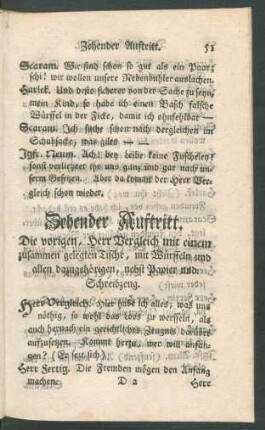 Zehender Auftritt. 51
Scaram. Wir sind schon so gut als ein Paar
schi! wir wollen unsere Nebenbuhler auslachen.
Harlek. Und desto sicherer von der Sache zu seyn,
mein Kind, so habe ich einen Pasch falsche
Würffel in der Ficke, damit ich ohnfehlbar —
Scaram. Ich suche schon nach dergleichen im
Schubsacke, was gilts — —
Jgfr. Neum. Ach! bey leibe keine Fuscheley,
sonst verliehret ihr uns ganz und gar nach un-
sern Gesetzen. Aber da kommt der Herr Ver-
gleich schon wieder.
Zehender Auftritt.
Die vorigen, Herr Vergleich mit einem
zusammen gelegten Tische, mit Würffeln und
allen dazugehörigen, nebst Papier und
Schreibzeug.
Herr Vergleich. Hier habe ich alles, was uns
nöthig, so wohl das loos zu werffen, als
auch hernach ein gerichtliches Zeugnis darüber
aufzusetzen. Kommt herzu, wer will anfan-
gen? (Er setzt sich).
Herr Fertig. Die Fremden mögen den Anfang
machen. D 2 Herr